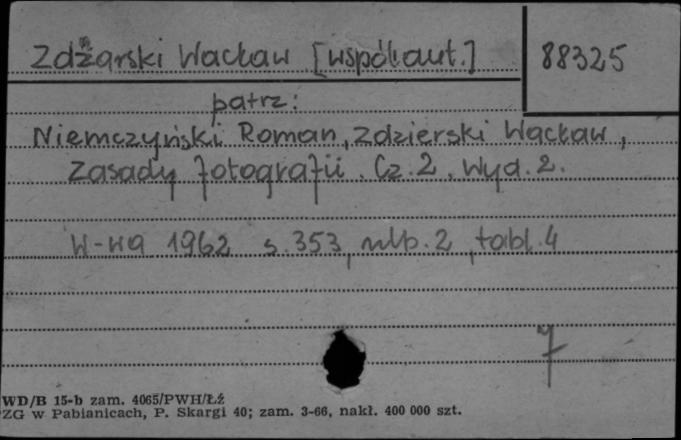 Zdżarski Wacław [współaut.] 88325
patrz:
Niemczyński Roman, Zdzierski Wacław,
Zasady fotografii. Cz. 2. Wyd. 2.
W-wa 1962 s. 353, nlb. 2, tabl. 4
7
WD/B 15-b zam. 4065/PWH/Łź
ZG w Pabianicach, P. Skargi 40; zam. 3-66, nakł. 400 000 szt.